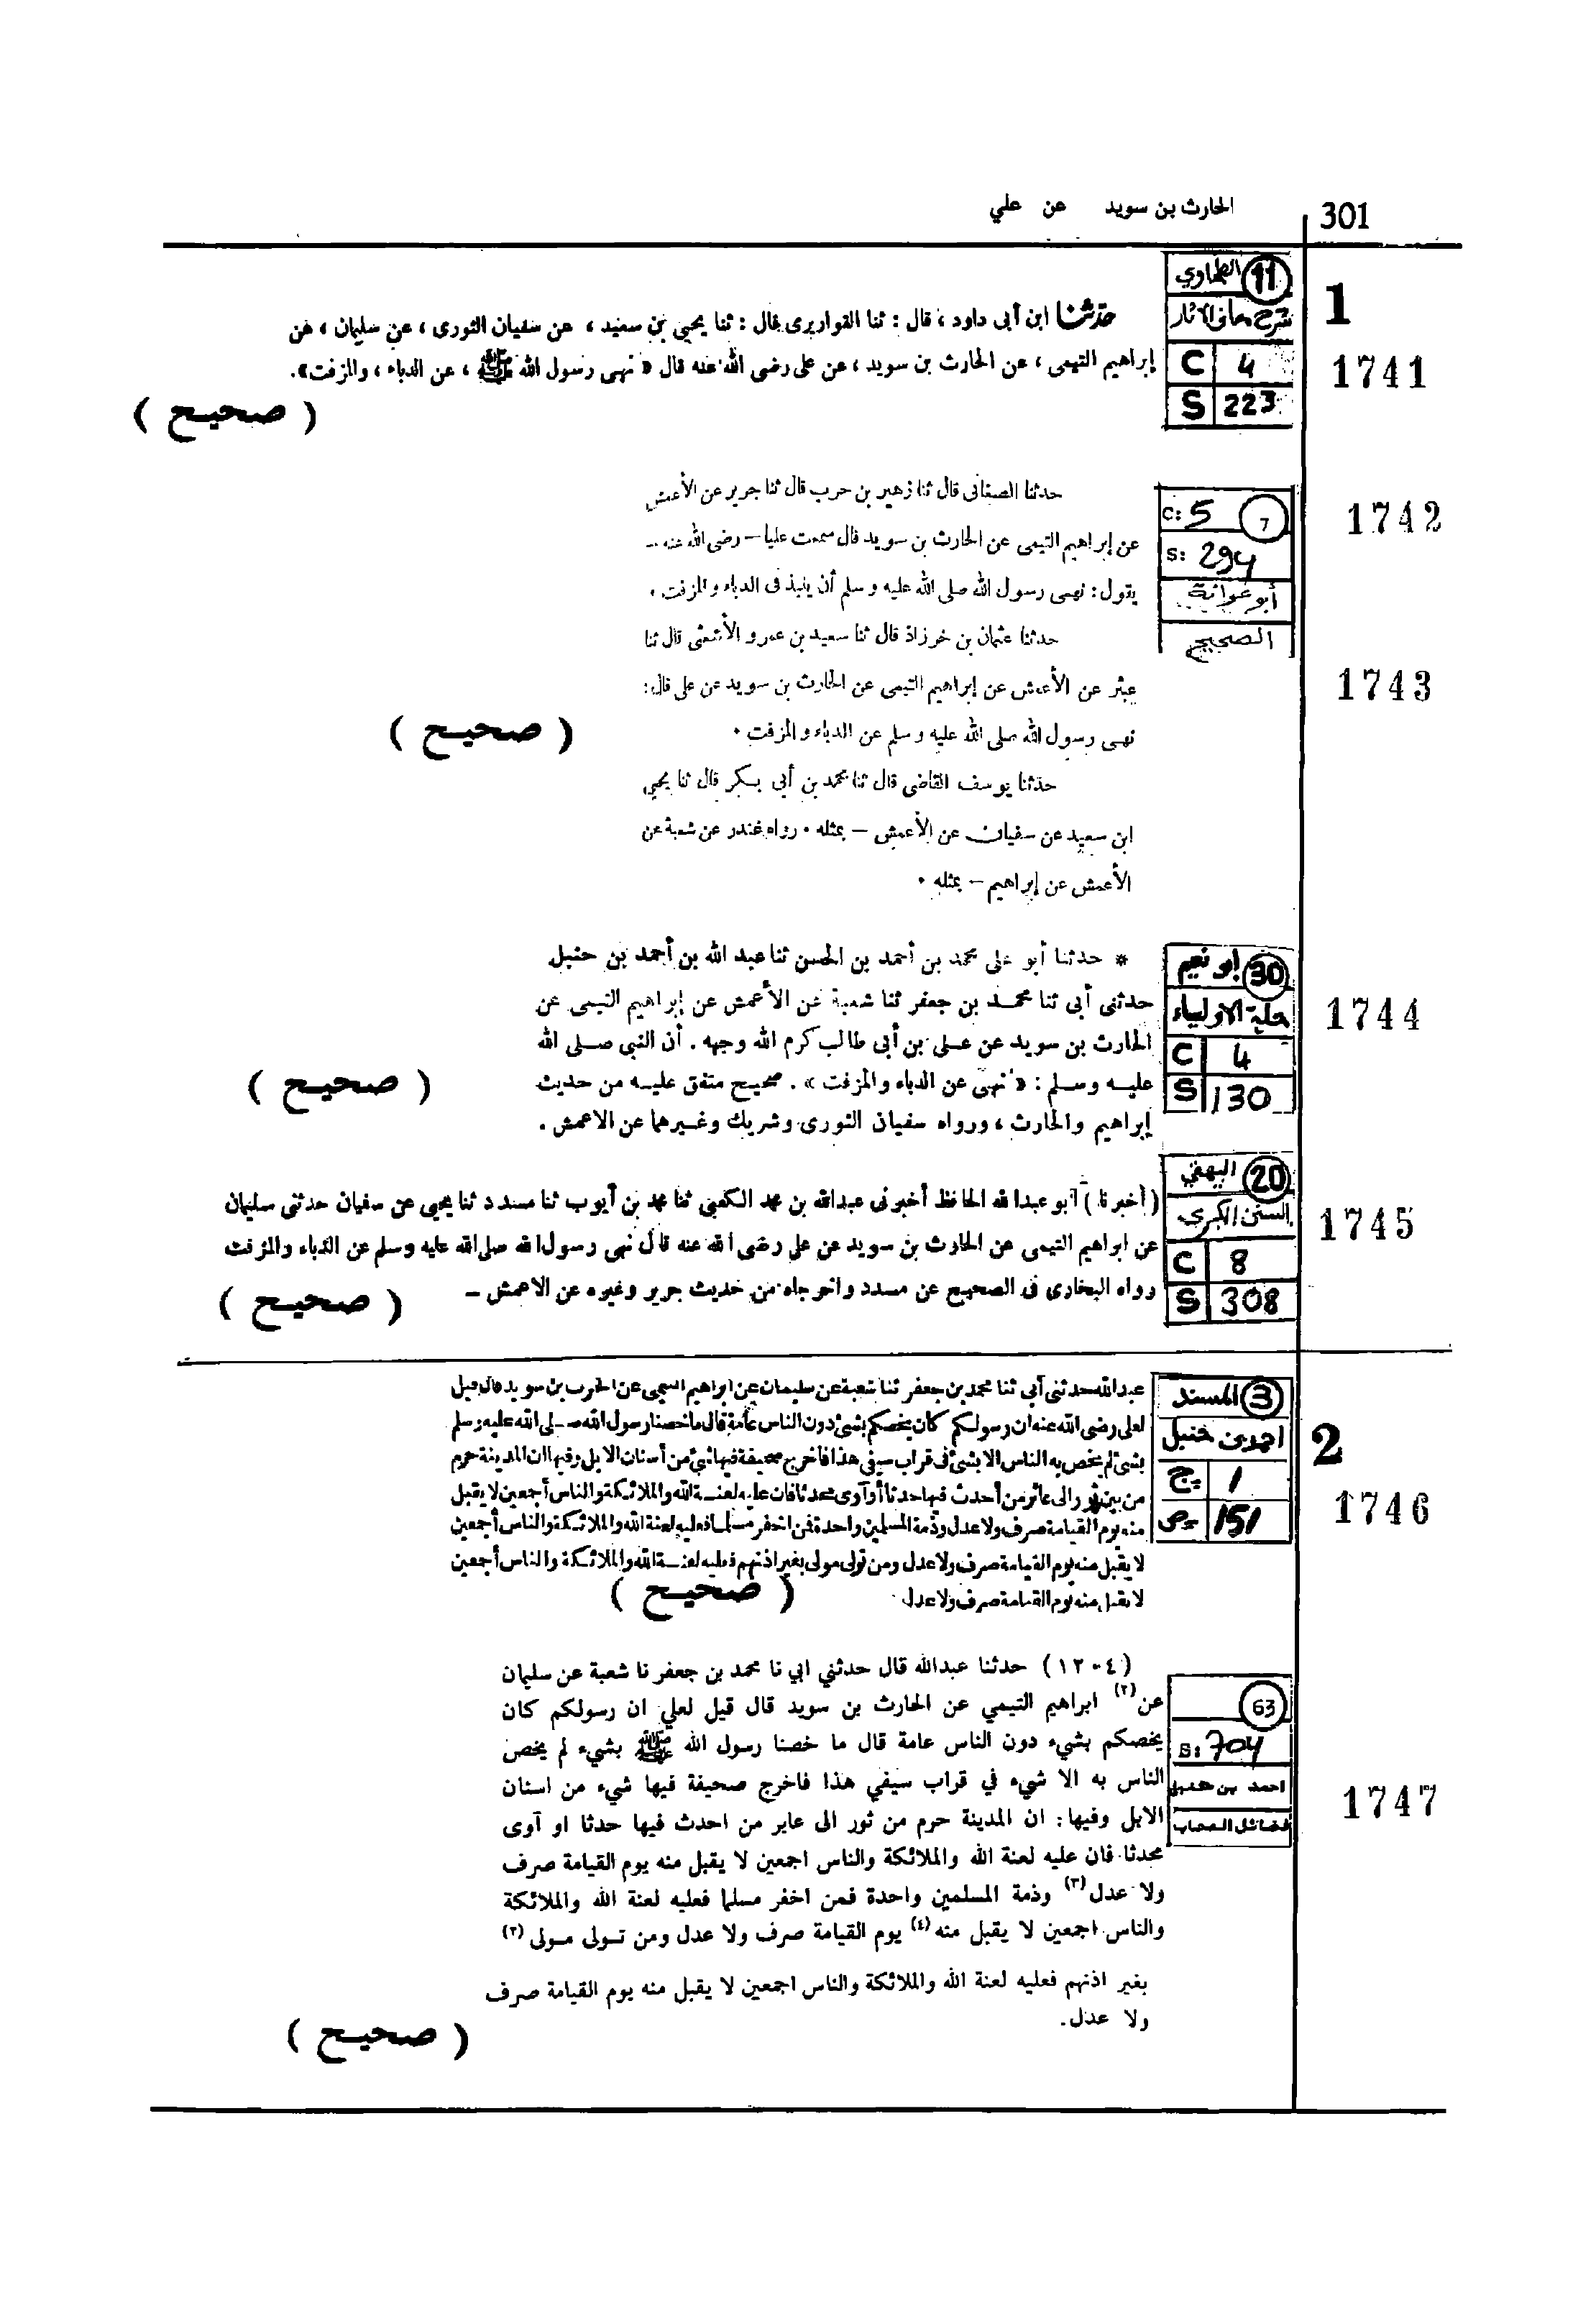 301
الحارث بن سويد عن علي
1
11 الطحاوي
شرح معاني الآثار
C 4
S 223
1741
حدثنا ابن أبى داود ، قال : ثنا القواريرى قال : ثنا يحيى بن سعيد ، عن سفيان الثورى ، عن سليمان ، عن
إبراهيم التيمى ، عن الحارث بن سويد ، عن على رضى الله عنه قال « نهى رسول الله ﷺ ، عن الدباء ، والمزفت».
( صحيح )
C: 5 7
S: 294
أبو عوانة
الصحيح
1742
حدثنا الصغانى قال ثنا زهير بن حرب قال ثنا جرير عن الأعمش
عن إبراهيم التيمى عن الحارث بن سويد قال سمعت عليا – رضى الله عنه –
يقول: نهى رسول الله صلى الله عليه و سلم أن ينبذ فى الدباء و المزفت .
1743
حدثنا عثمان بن خرزاذ قال ثنا سعيد بن عمرو الأشعثى قال ثنا
عبثر عن الأعمش عن إبراهيم التيمى عن الحارث بن سويد عن على قال:
نهى رسول الله صلى الله عليه و سلم عن الدباء و المزفت .
( صحيح )
حدثنا يوسف القاضى قال ثنا محمد بن أبى بكر قال ثنا يحيى
ابن سعيد عن سفيان عن الأعمش – بمثله . رواه غندر عن شعبة عن
الأعمش عن إبراهيم – بمثله .
30 ابو نعيم
حلية الاولياء
C 4
S 130
1744
* حدثنا أبو على محمد بن أحمد بن الحسن ثنا عبد الله بن أحمد بن حنبل
حدثنى أبى ثنا محمد بن جعفر ثنا شعبة عن الأعمش عن إبراهيم التيمى عن
الحارث بن سويد عن على بن أبى طالب كرم الله وجهه . أن النبى صلى الله
عليه وسلم : « نهى عن الدباء والمزفت » . صحيح متفق عليه من حديث
إبراهيم والحارث ، ورواه سفيان الثورى وشريك وغيرهما عن الاعمش .
( صحيح )
20 البيهقي
السنن الكبرى
C 8
S 308
1745
( أخبرنا ) أبو عبدالله الحافظ أخبرنى عبدالله بن محمد الكعبى ثنا محمد بن أيوب ثنا مسدد ثنا يحيى عن سفيان حدثنى سليمان
عن ابراهيم التيمى عن الحارث بن سويد عن على رضى الله عنه قال نهى رسول الله صلى الله عليه وسلم عن الدباء والمزفت
رواه البخارى فى الصحيح عن مسدد واخرجاه من حديث جرير وغيره عن الاعمش –
( صحيح )
3 المسند
احمد بن حنبل
ج 1
ص 151
2
1746
عبد الله حدثنى أبى ثنا محمد بن جعفر ثنا شعبة عن سليمان عن ابراهيم التيمى عن الحرث بن سويد قال قيل
لعلى رضى الله عنه ان رسولكم كان يخصكم بشئ دون الناس عامة قال ما خصنا رسول الله صلى الله عليه وسلم
بشئ لم يخص به الناس الا بشئ فى قراب سيفى هذا فأخرج صحيفة فيها شئ من أسنان الابل وفيها ان المدينة حرم
من بين ثور الى عائر من أحدث فيها حدثا أو آوى محدثا فان عليه لعنة الله والملائكة والناس أجمعين لا يقبل
منه يوم القيامة صرف ولا عدل وذمة المسلمين واحدة فمن اخفر مسلما فعليه لعنة الله والملائكة والناس أجمعين
لا يقبل منه يوم القيامة صرف ولا عدل ومن تولى مولى بغير اذنهم فعليه لعنة الله والملائكة والناس أجمعين
لا يقبل منه يوم القيامة صرف ولا عدل
( صحيح )
63
S: 704
احمد بن حنبل
فضائل الصحاب
1747
(١٢٠٤) حدثنا عبدالله قال حدثني ابي نا محمد بن جعفر نا شعبة عن سليمان
عن (٢) ابراهيم التيمي عن الحارث بن سويد قال قيل لعلي ان رسولكم كان
يخصكم بشيء دون الناس عامة قال ما خصنا رسول الله ﷺ بشيء لم يخص
الناس به الا شيء في قراب سيفي هذا فاخرج صحيفة فيها شيء من اسنان
الابل وفيها: ان المدينة حرم من ثور الى عاير من احدث فيها حدثا او آوى
محدثا فان عليه لعنة الله والملائكة والناس اجمعين لا يقبل منه يوم القيامة صرف
ولا عدل (٣) وذمة المسلمين واحدة فمن اخفر مسلما فعليه لعنة الله والملائكة
والناس اجمعين لا يقبل منه (٤) يوم القيامة صرف ولا عدل ومن تولى مولى (٣)
بغير اذنهم فعليه لعنة الله والملائكة والناس اجمعين لا يقبل منه يوم القيامة صرف
ولا عدل.
( صحيح )